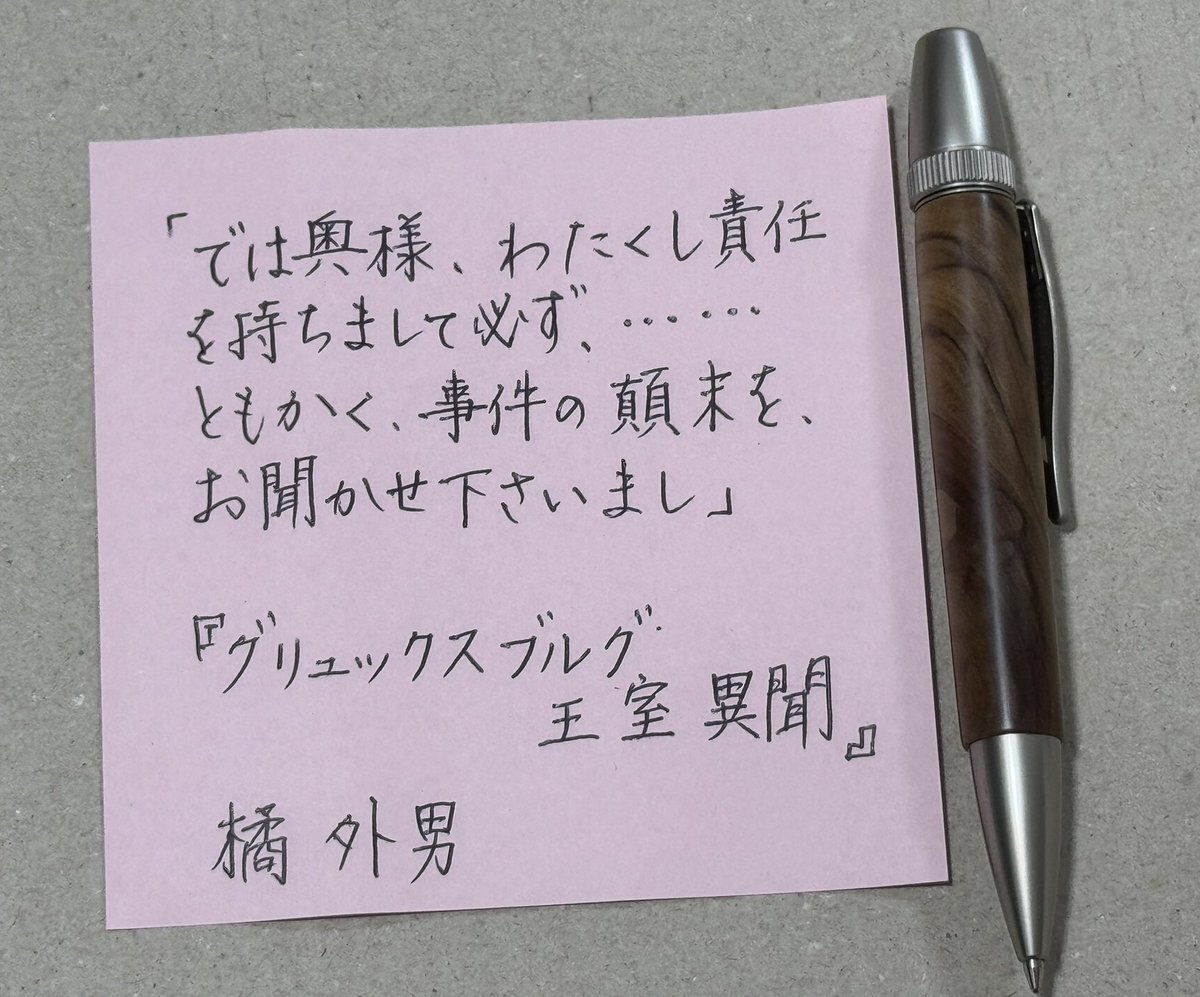 「では奥様、わたくし責任
を持ちまして必ず、……
ともかく、事件の顛末を、
お聞かせ下さいまし」
『グリュックスブルグ
王室異聞』
橘外男